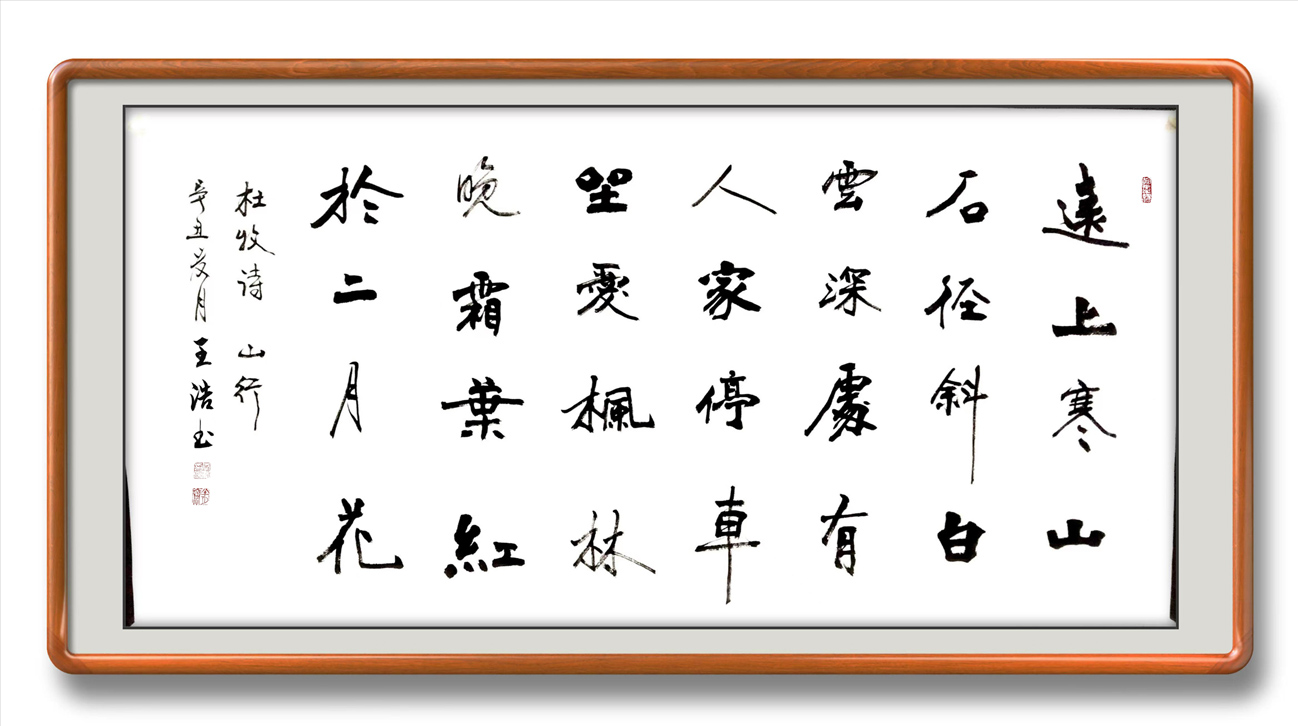 遠上寒山
石径斜白
雲深處有
人家停車
坐愛楓林
晚霜葉紅
於二月花
杜牧诗 山行
辛丑夏月 王浩书